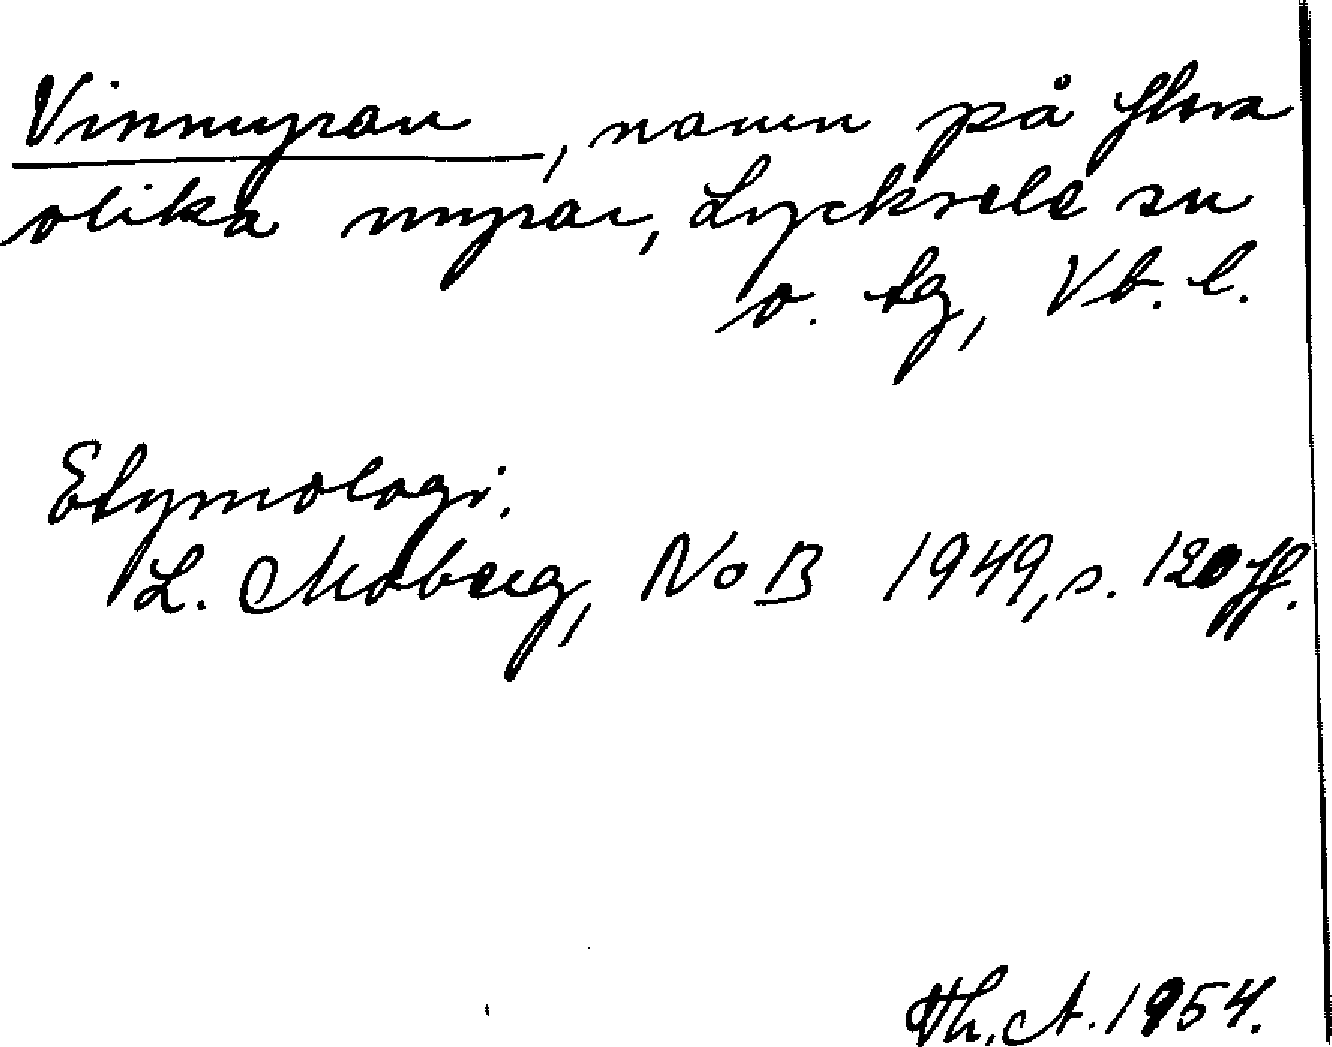 Vinmyran, namn på flera
olika myrar, Lycksele sn
o. tg, Vb. l.
Etymologi.
L. Moberg, NoB 1949, s. 120 ff.
Th. A. 1954.